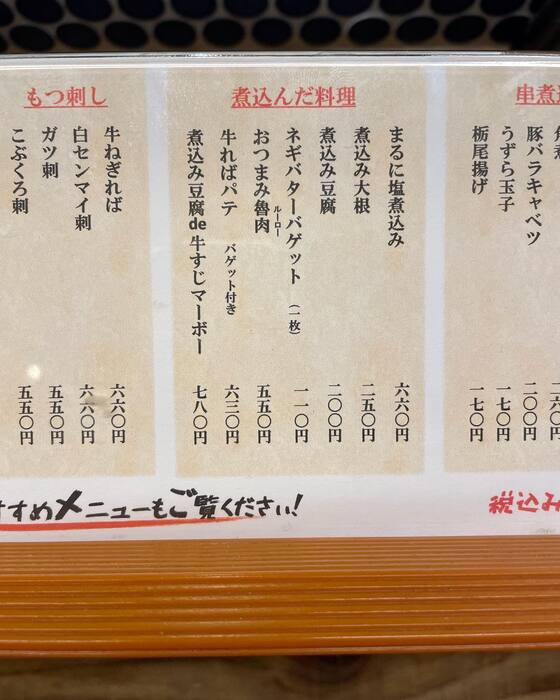 串煮込
豚バラキャベツ
二〇〇円
うずら玉子
一七〇円
栃尾揚げ
一七〇円
煮込んだ料理
まるに塩煮込み
六六〇円
煮込み大根
二五〇円
煮込み豆腐
二〇〇円
ネギバターバゲット (一枚)
一一〇円
おつまみ魯肉
ルーロー
五五〇円
牛ればパテ バゲット付き
六三〇円
煮込み豆腐de牛すじマーボー
七八〇円
もつ刺し
牛ねぎれば
六六〇円
白センマイ刺
六六〇円
ガツ刺
五五〇円
こぶくろ刺
五五〇円
すすめメニューもご覧ください!
税込み